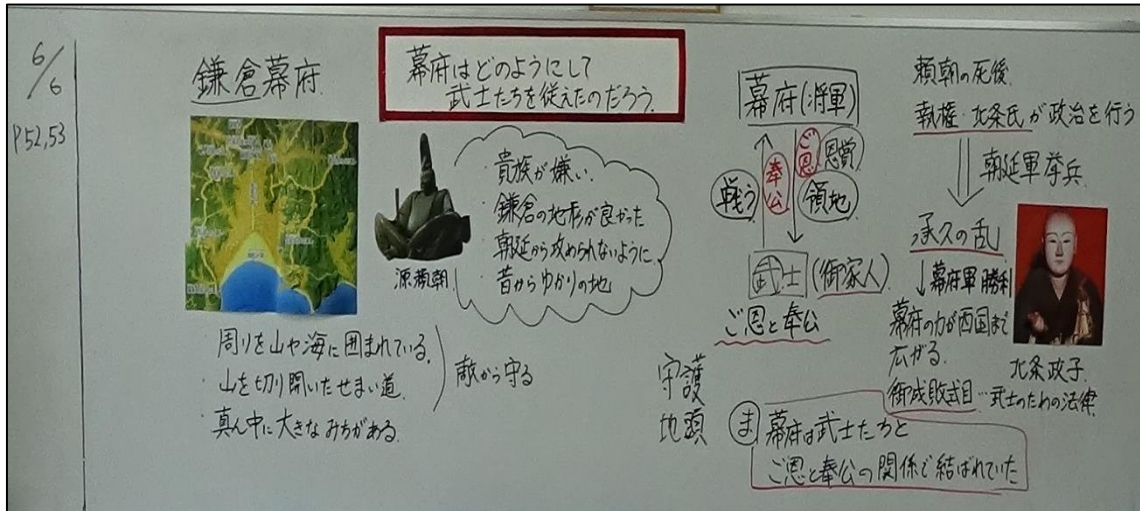 6/6
P52,53
鎌倉幕府
幕府はどのようにして
武士たちを従えたのだろう。
源頼朝
・貴族が嫌い。
・鎌倉の地形が良かった
・朝廷から攻められないように
・昔からゆかりの地
周りを山や海に囲まれている。
・山を切り開いたせまい道
・真ん中に大きなみちがある。
敵から守る
幕府(将軍)
戦う
奉公
ご恩
恩賞
領地
武士(御家人)
ご恩と奉公
守護
地頭
頼朝の死後
執権・北条氏が政治を行う
朝廷軍挙兵
承久の乱
幕府軍勝利
幕府の力が西国まで
広がる。
北条政子
御成敗式目…武士のための法律
ま 幕府は武士たちと
ご恩と奉公の関係で結ばれていた